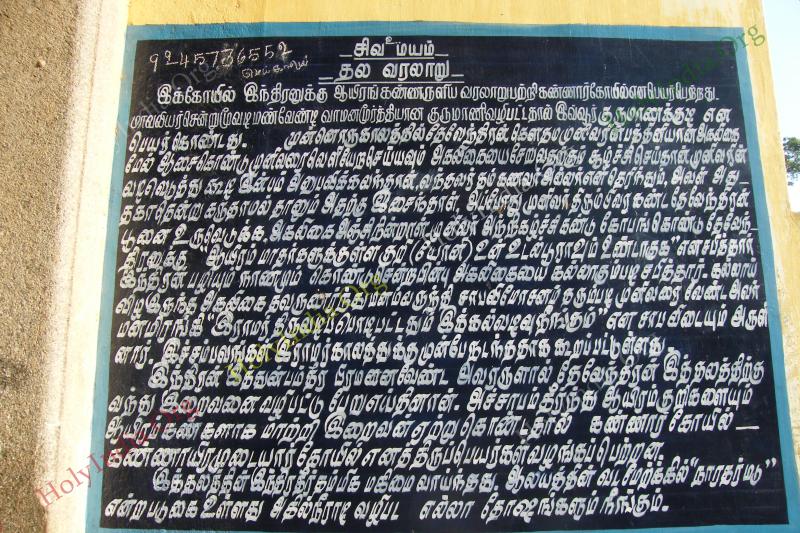 9245736552
சிவ மயம்
தல வரலாறு
இக்கோயில் இந்திரனுக்கு ஆயிரங்கண்ணருளிய வரலாறுபற்றி கண்ணார்கோயில் என பெயர்பெற்றது.
மாவலியிடர்சென்று மூவடிமண்வேண்டி வாமனமூர்த்தியான குருமாணிவழிபட்டதால் இவ்வூர் குருமாணக்குடி என
பெயர் கொண்டது. முன்னொருகாலத்தில் தேவேந்திரன் கௌதம முனிவரின் பத்தினியான் அகலிகை
மேல் ஆசைகொண்டு முனிவரை வெளியேறசெய்யவும் அகலிகையை சேரவுந்தந்திரம் சூழ்ச்சி செய்தான். முனிவரின்
வடிவெடுத்து கூடி இன்பம் அனுபவிக்கவந்தான். வந்தவர் தம் கணவர் அல்லர் எனதெரிந்தும், அவள் அது
தகாதென்று கருதாமல் தானும் அதற்கு இசைந்தாள். அப்போது முனிவர் திரும்பிவர கண்ட தேவேந்திரன்
பூனை உருவெடுக்க, அகலிகை அஞ்சிநின்றாள். முனிவர் அந்நிகழ்ச்சி கண்டு கோபங் கொண்டு தேவேந்
திரனுக்கு ஆயிரம் மாதர்களுக்குள்ள குறி (யோனி) உன் உடல்பூராவும் உண்டாகுக" எனசபித்தார்
இந்திரன் பழியும் நாணமும் கொண்டு சென்றபின்பு அகலிகையை கல்லாகும்படி சபித்தார். கல்லாய்
விழஇருந்த அகலிகை தவறுணர்ந்து மனம்வருந்தி சாபவிமோசனம் தரும்படி முனிவரை வேண்ட அவர்
மனமிரங்கி "இராமர் திருவடிப்பொடிபட்டதும் இக்கல்வடிவு நீங்கும்" என சாப விடையும் அருளி
னார். இச்சம்பவங்கள் இராமர்காலத்துக்கு முன்பே நடந்ததாக கூறப்பட்டுள்ளது.
இந்திரன் பிரமனைவேண்ட அவரருளால் தேவேந்திரன் இத்தலத்திற்கு
வந்து இறைவனை வழிபட்டு பேறுஎய்தினான். அச்சாபம்தீர்ந்து ஆயிரம்குறிகளையும்
ஆயிரம் கண்களாக மாற்றி இறைவன்ஏற்று கொண்டதால் கண்ணார் கோயில் —
கண்ணாயிரமுடையார் கோயில் எனத்திருப்பெயர்கள் வழங்கப்பெற்றன.
இத்தலத்தின் இந்திரதீர்த்தம்மிக மகிமை வாய்ந்தது. ஆலயத்தின் வடமேற்கில் "நாரதர்மடு"
என்ற படுகை உள்ளது அதில்நீராடி வழிபட எல்லா தோஷங்களும் நீங்கும்.
HolyIndia.Org
HolyIndia.Org
HolyIndia.Org